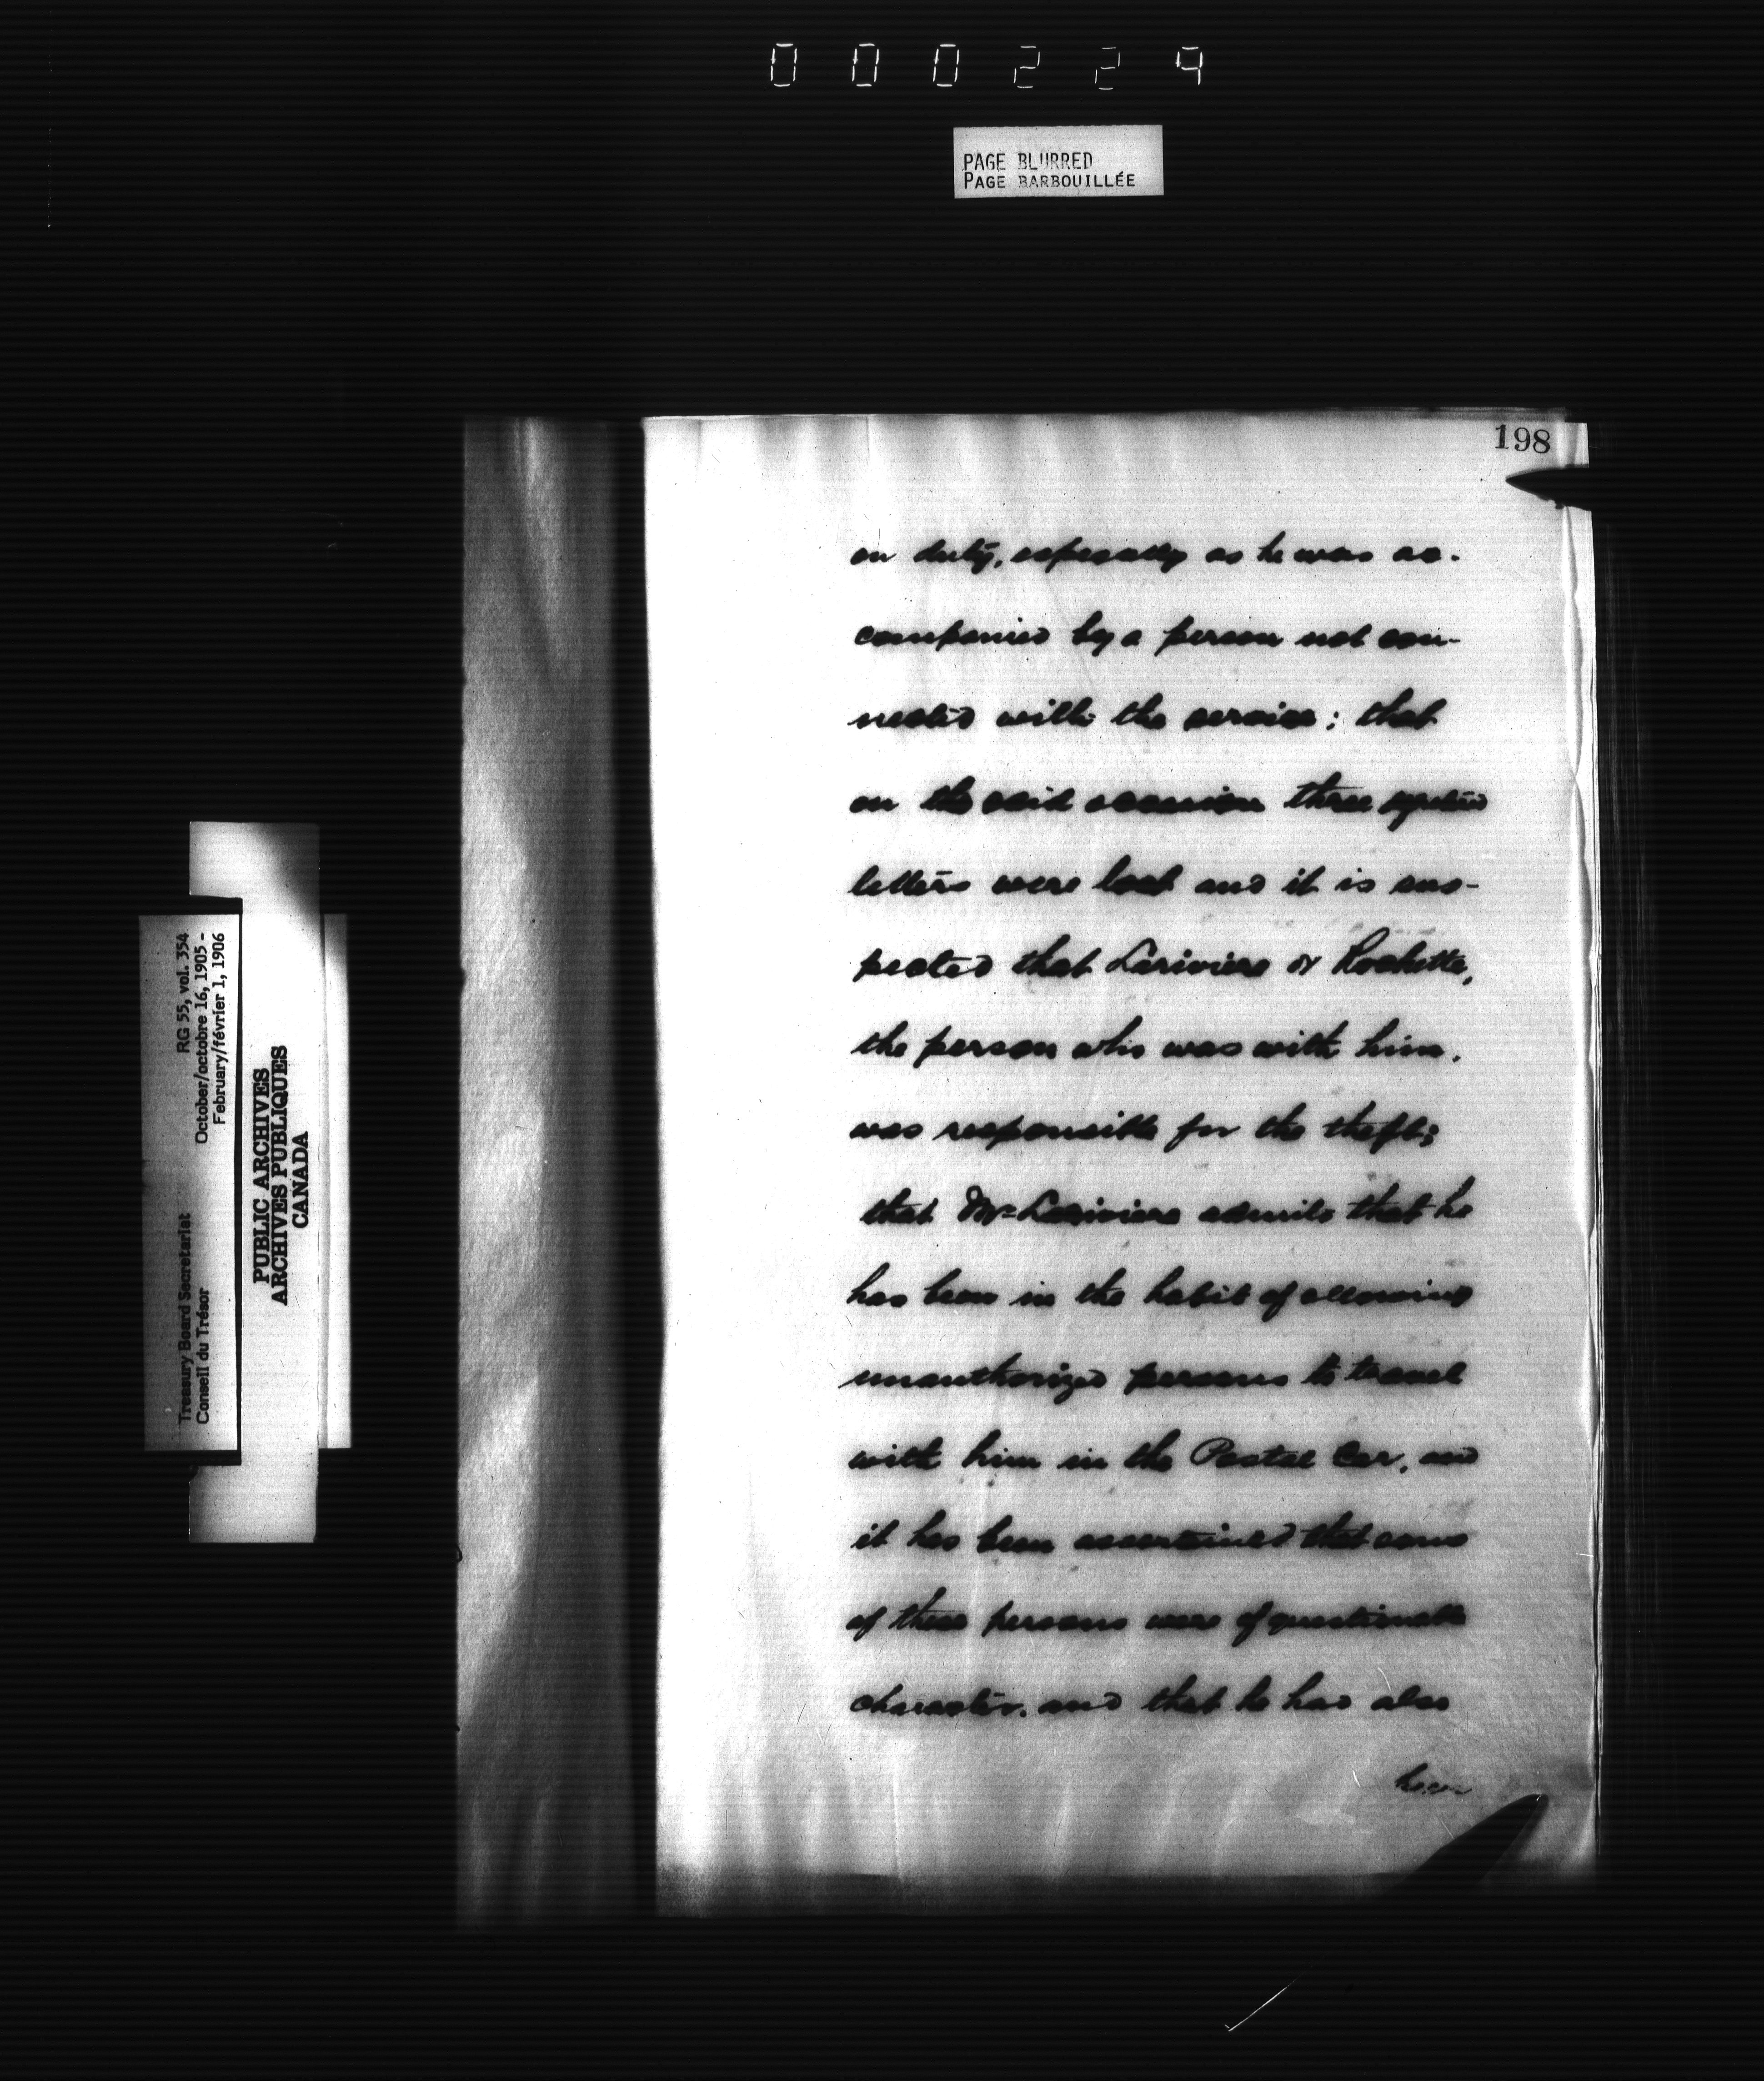 000229
PAGE BLURRED
PAGE BARBOUILLÉE
198
on duty, especially as he was ac-
companied by a person not con-
nected with the service; that
on the said occasion three
letters were lost and it is sus-
pected that Lariviere or Rochette,
the person who was with him,
was responsible for the theft;
that Mr Lariviere admits that he
has been in the habit of allowing
unauthorized persons to travel
with him in the Postal Car, and
it has been ascertained that some
of these persons were of questionable
character, and that he has also
been
Treasury Board Secretariat RG 55, vol. 354
Conseil du Trésor October/octobre 16, 1905 -
February/février 1, 1906
PUBLIC ARCHIVES
ARCHIVES PUBLIQUES
CANADA